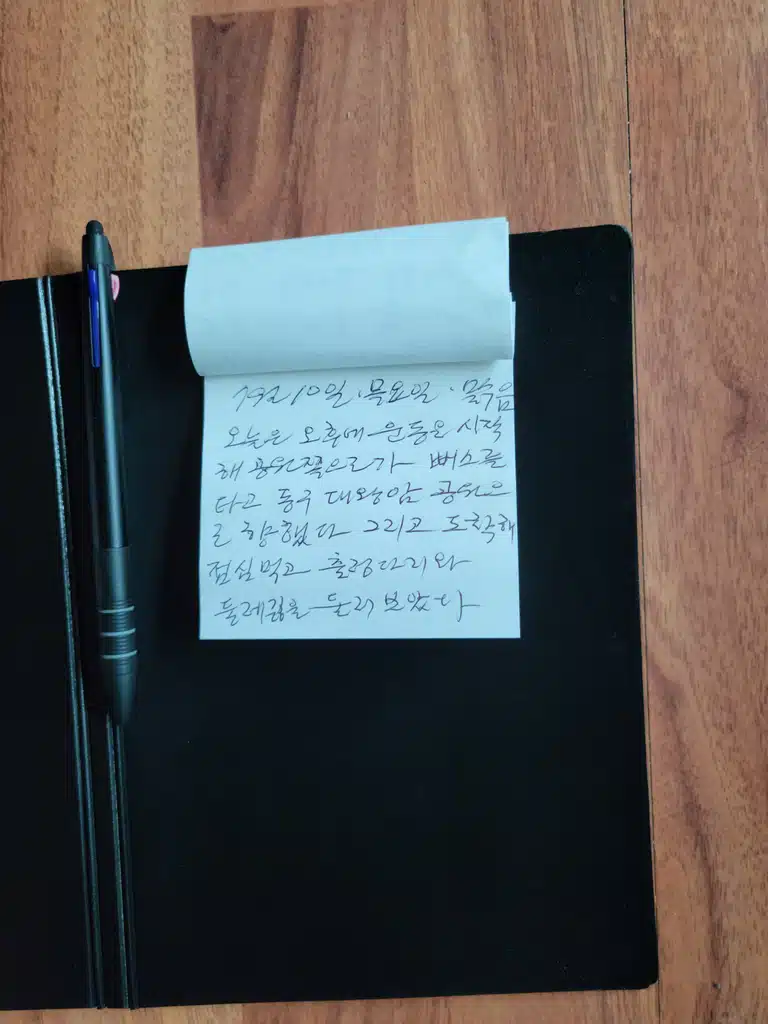 10일.목요일.맑음
오늘은 오후에 운동을 시작
해 공원쪽으로가 뻐스를
타고 동구 대왕암 공원으
로 향했다 그리고 도착해
점심먹고 출렁다리와
둘레길을 둘러 보았다